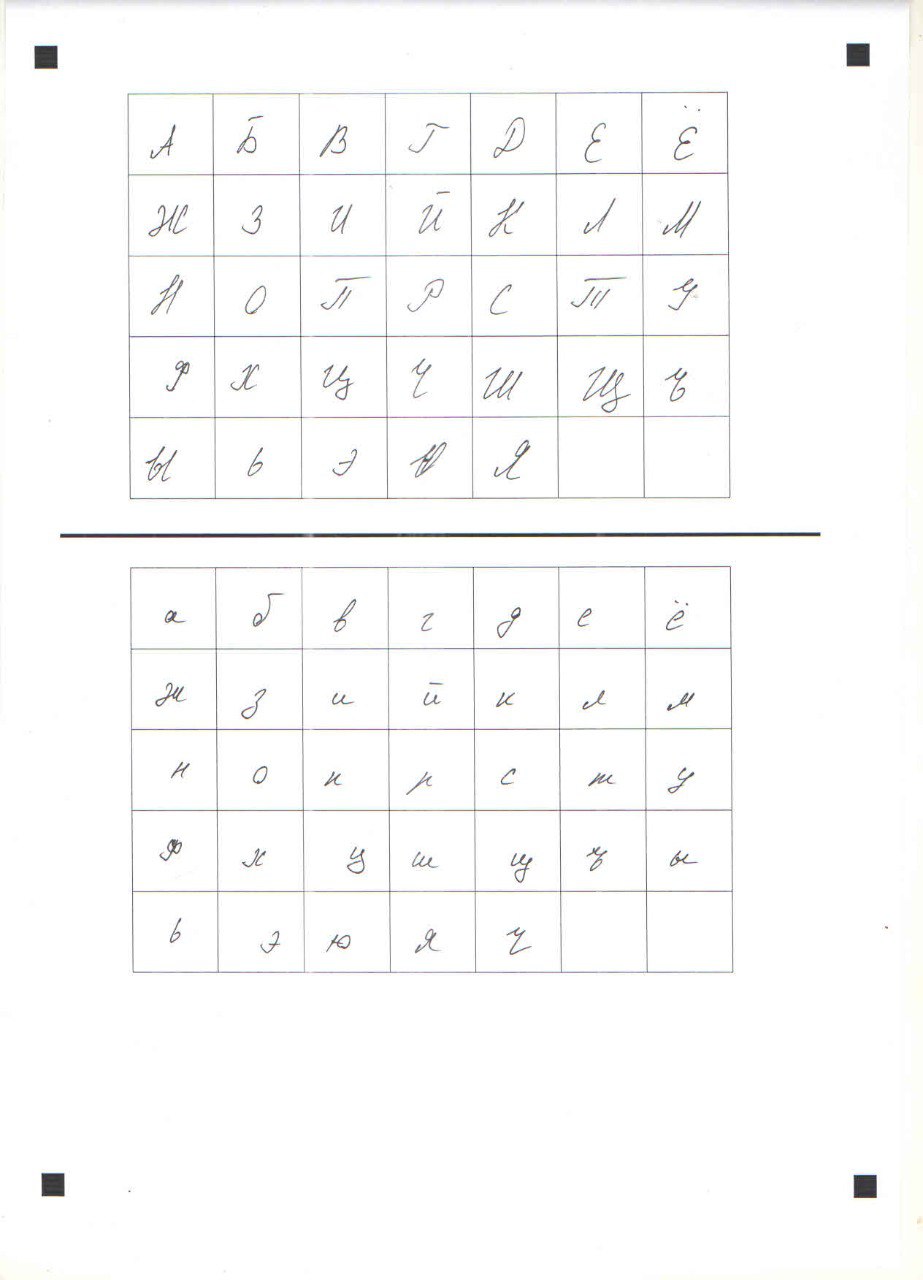 А Б В Г Д Е Ё
Ж З И Й К Л М
Н О П Р С Т У
Ф Х Ц Ч Ш Щ Ъ
Ы Ь Э Ю Я
а б в г д е ё
ж з и й к л м
н о п р с т у
ф х ц ш щ ъ ы
ь э ю я ч